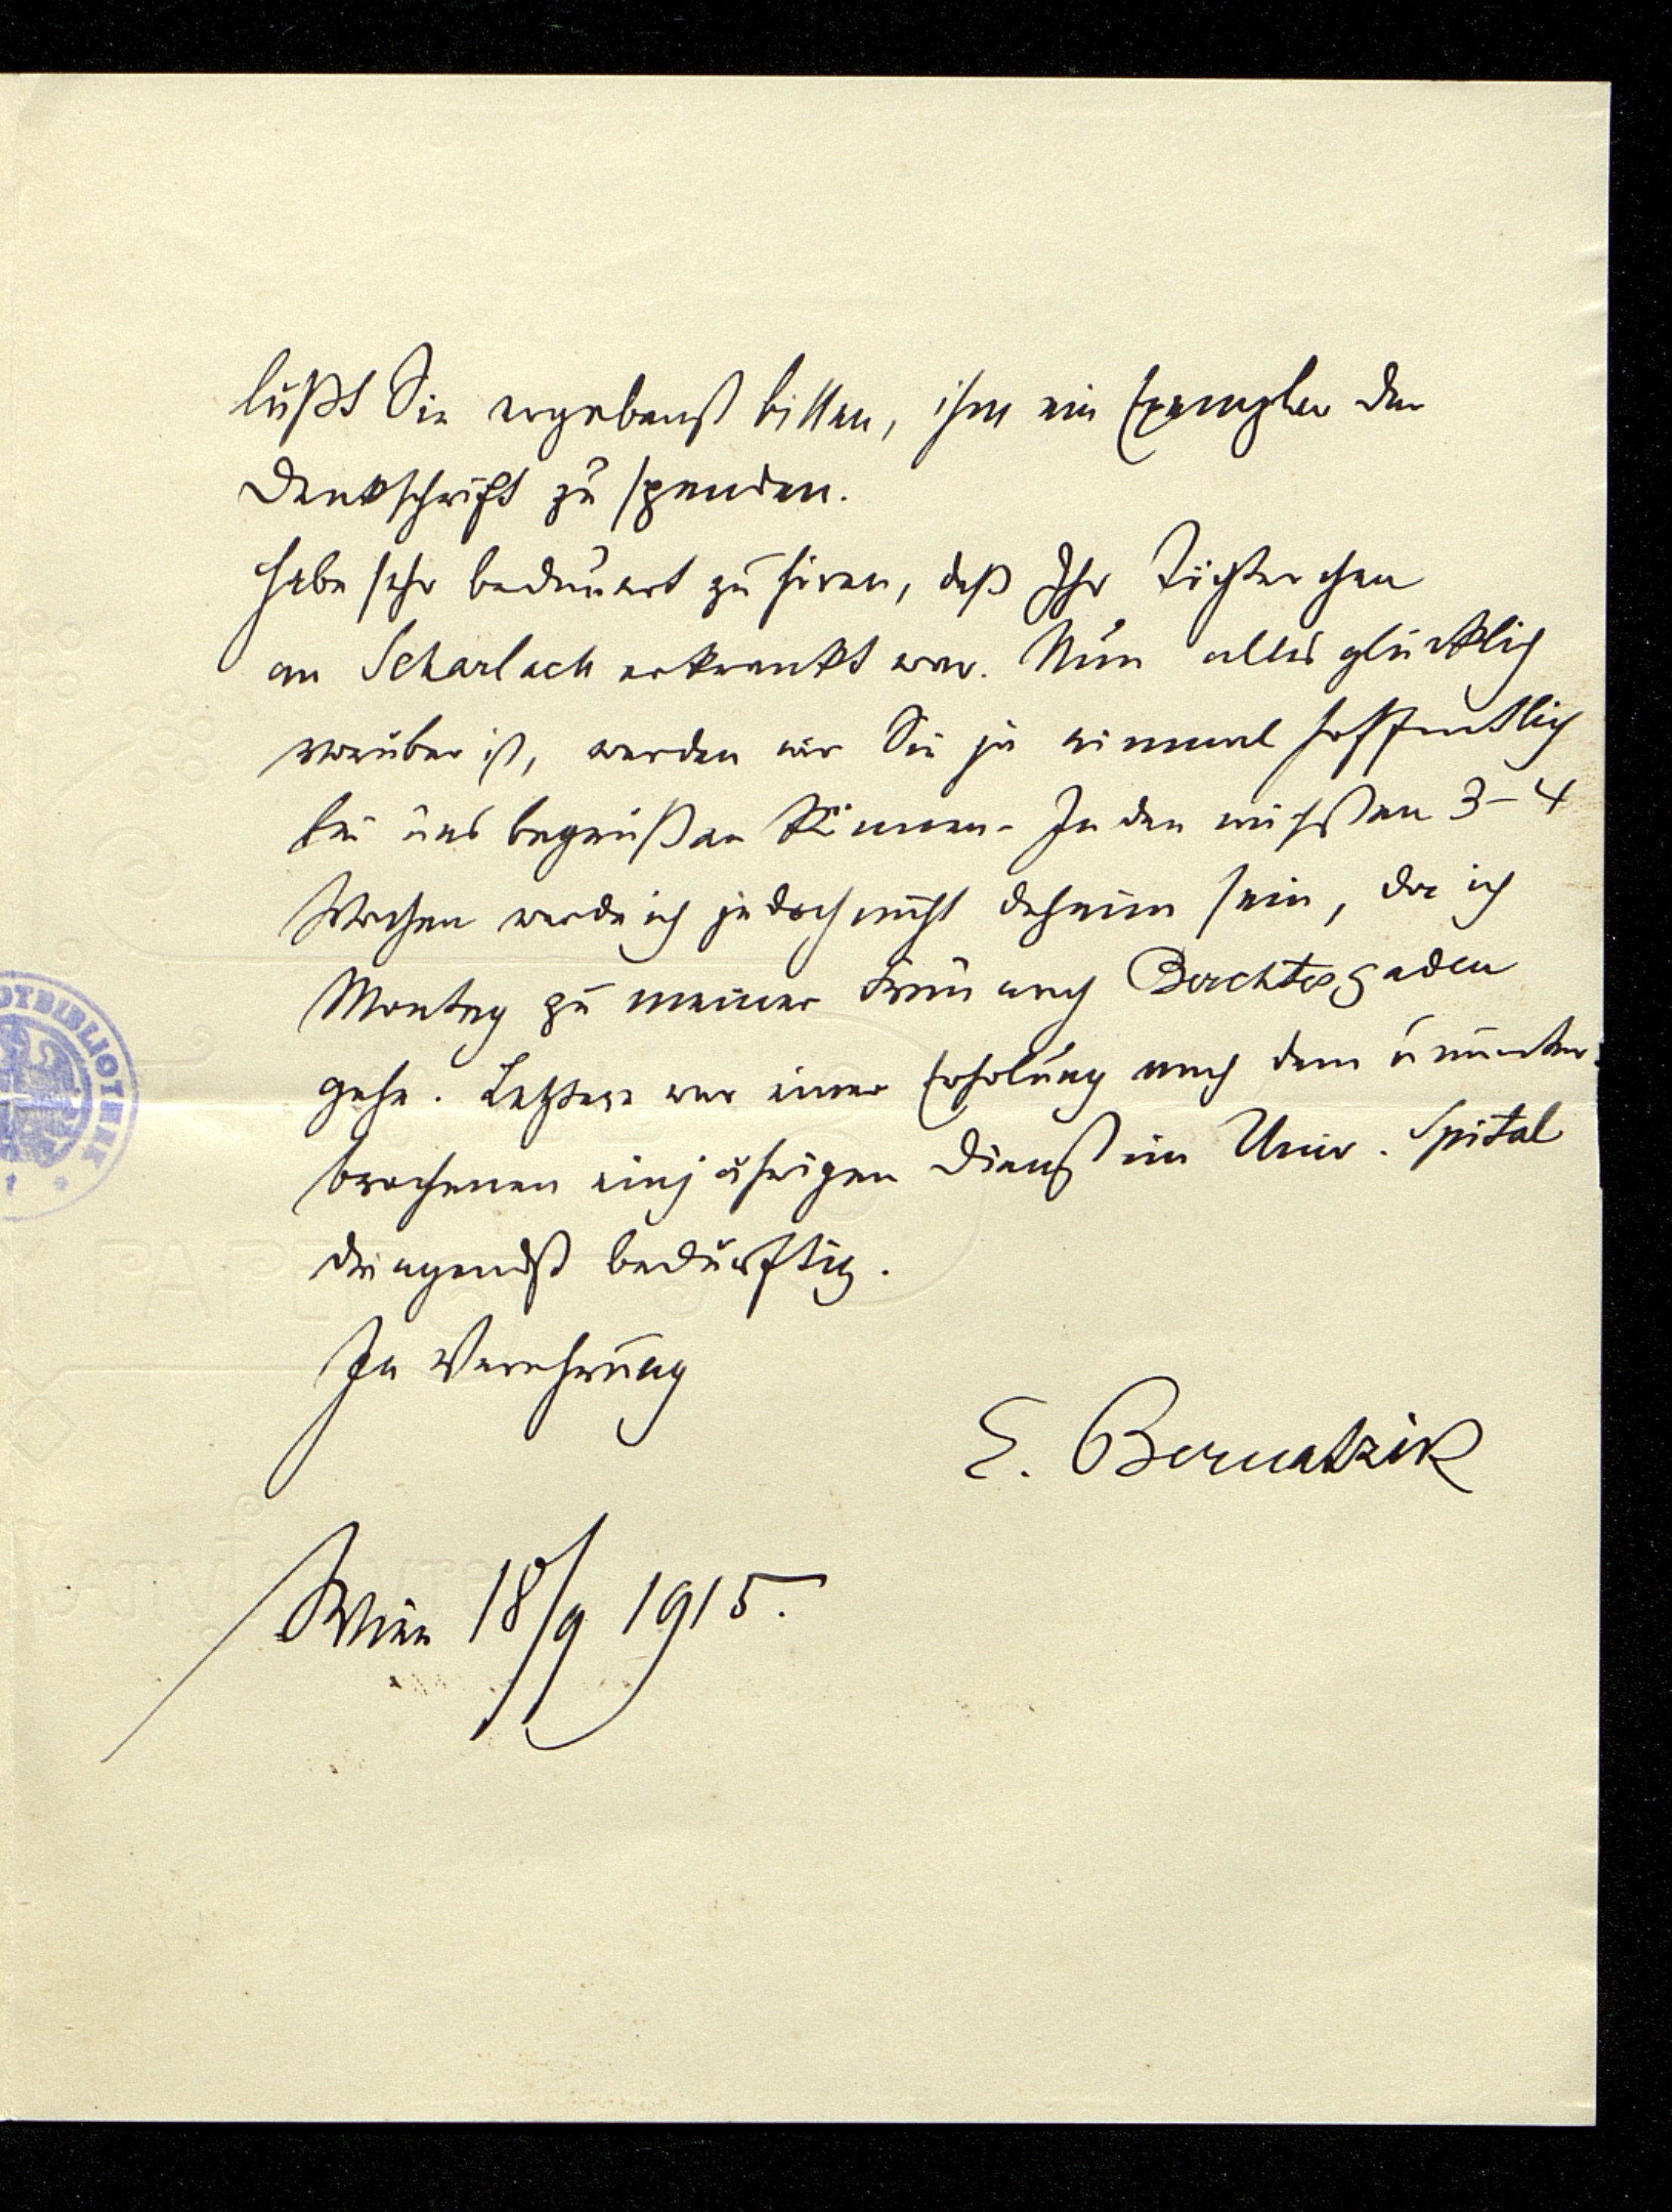 läßt Sie ergebenst bitten, ihm ein Exemplar der
Denkschrift zu spenden.
Habe sehr bedauert zu hören, daß Ihr Töchterchen
an Scharlach erkrankt war. Nun alles glücklich
vorüber ist, werden wir Sie ja einmal hoffentlich
bei uns begrüßen können. In den nächsten 3–4
Wochen werde ich jedoch nicht daheim sein, da ich
Montag zu meiner Frau nach Berchtesgaden
gehe. Letztere war einer Erholung nach dem ununter-
brochenen einjährigen Dienst im Univ. Spital
dringendst bedürftig.
In Verehrung
E. Bernatzik
Wien 18/9 1915.